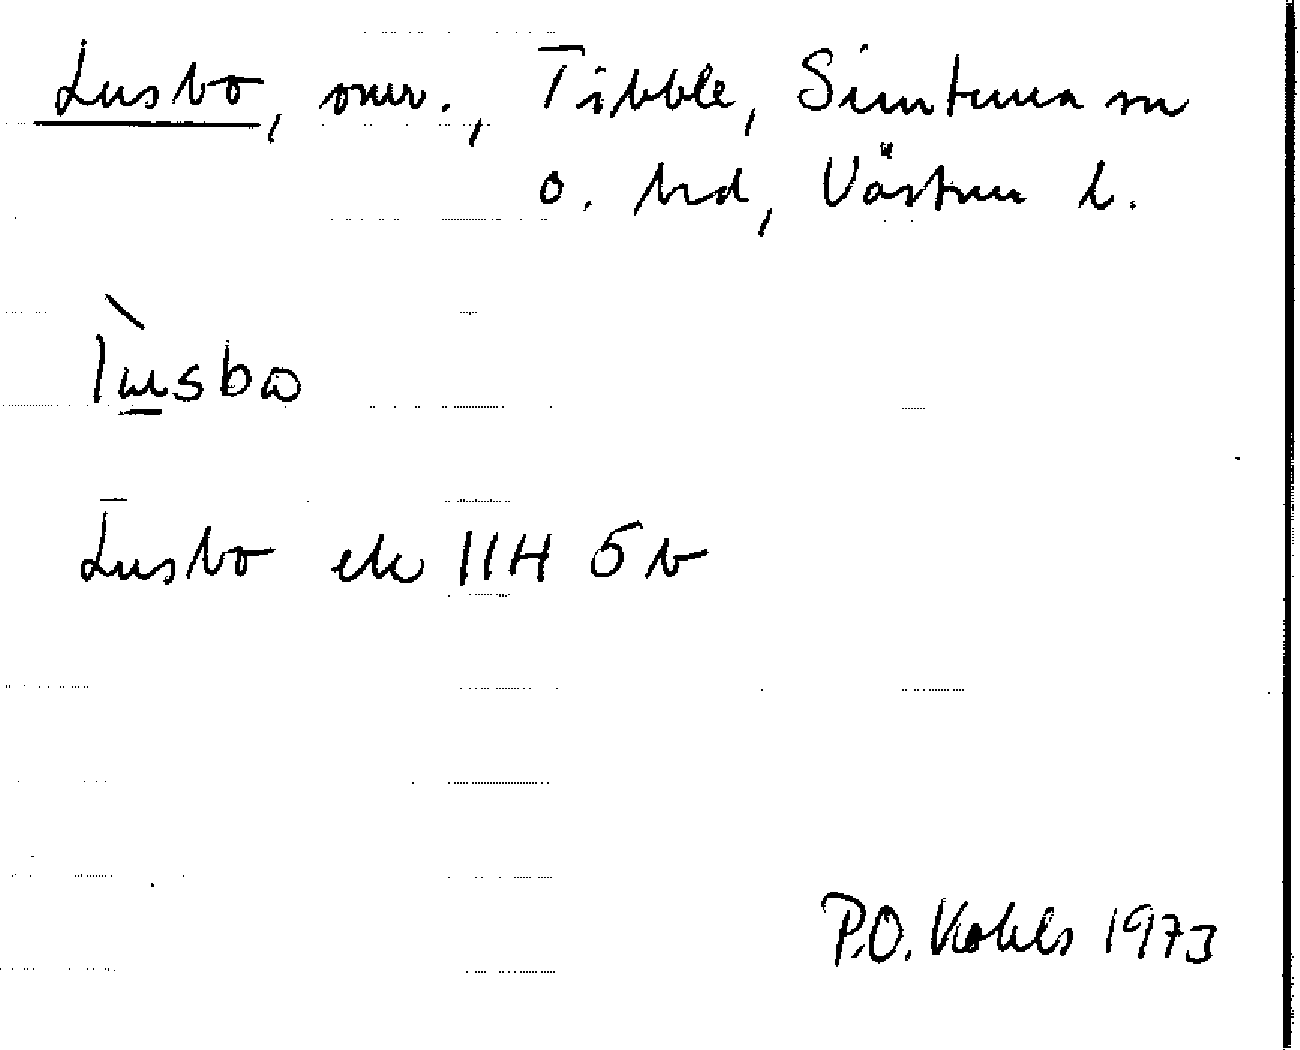 Lusbo, omr., Tibble, Simtuna sn
o. hd, Västm l.
lusbo
Lusbo ek 11H 5b
P.O. Kohls 1973